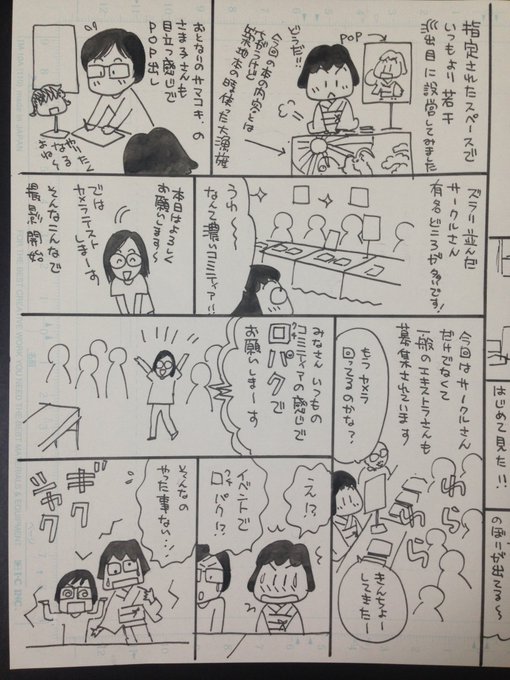 指定されたスペースで
いつもより若干
派出目に設営してみました
POP
どうだ!!
今回の本の内容とは
築地本の時使った大漁旗
おとなりのヤマコキ。の
さまう子さんも
目立つ感じで
POP出し
やったく
なるね〜
ズラリ並んだ
サークルさん
有名どころが多いです!
うわ〜〜
なんて濃いコミティア!!
本日はよろしく
お願いします〜
では
カメラテスト
しまーす
そんなこんなで
撮影開始
今回はサークルさん
だけでなくて
一般のエキストラさんも
募集されています
わら
わら
もうカメラ
回ってるのかな?
きんちょー
してきたー
みなさん いつもの
コミティアの感じで
口パクで
お願いしまーす
え!?
イベントで
口パク!?
そんなの
やた事ない…!
ギクシャク
はじめて見た!!